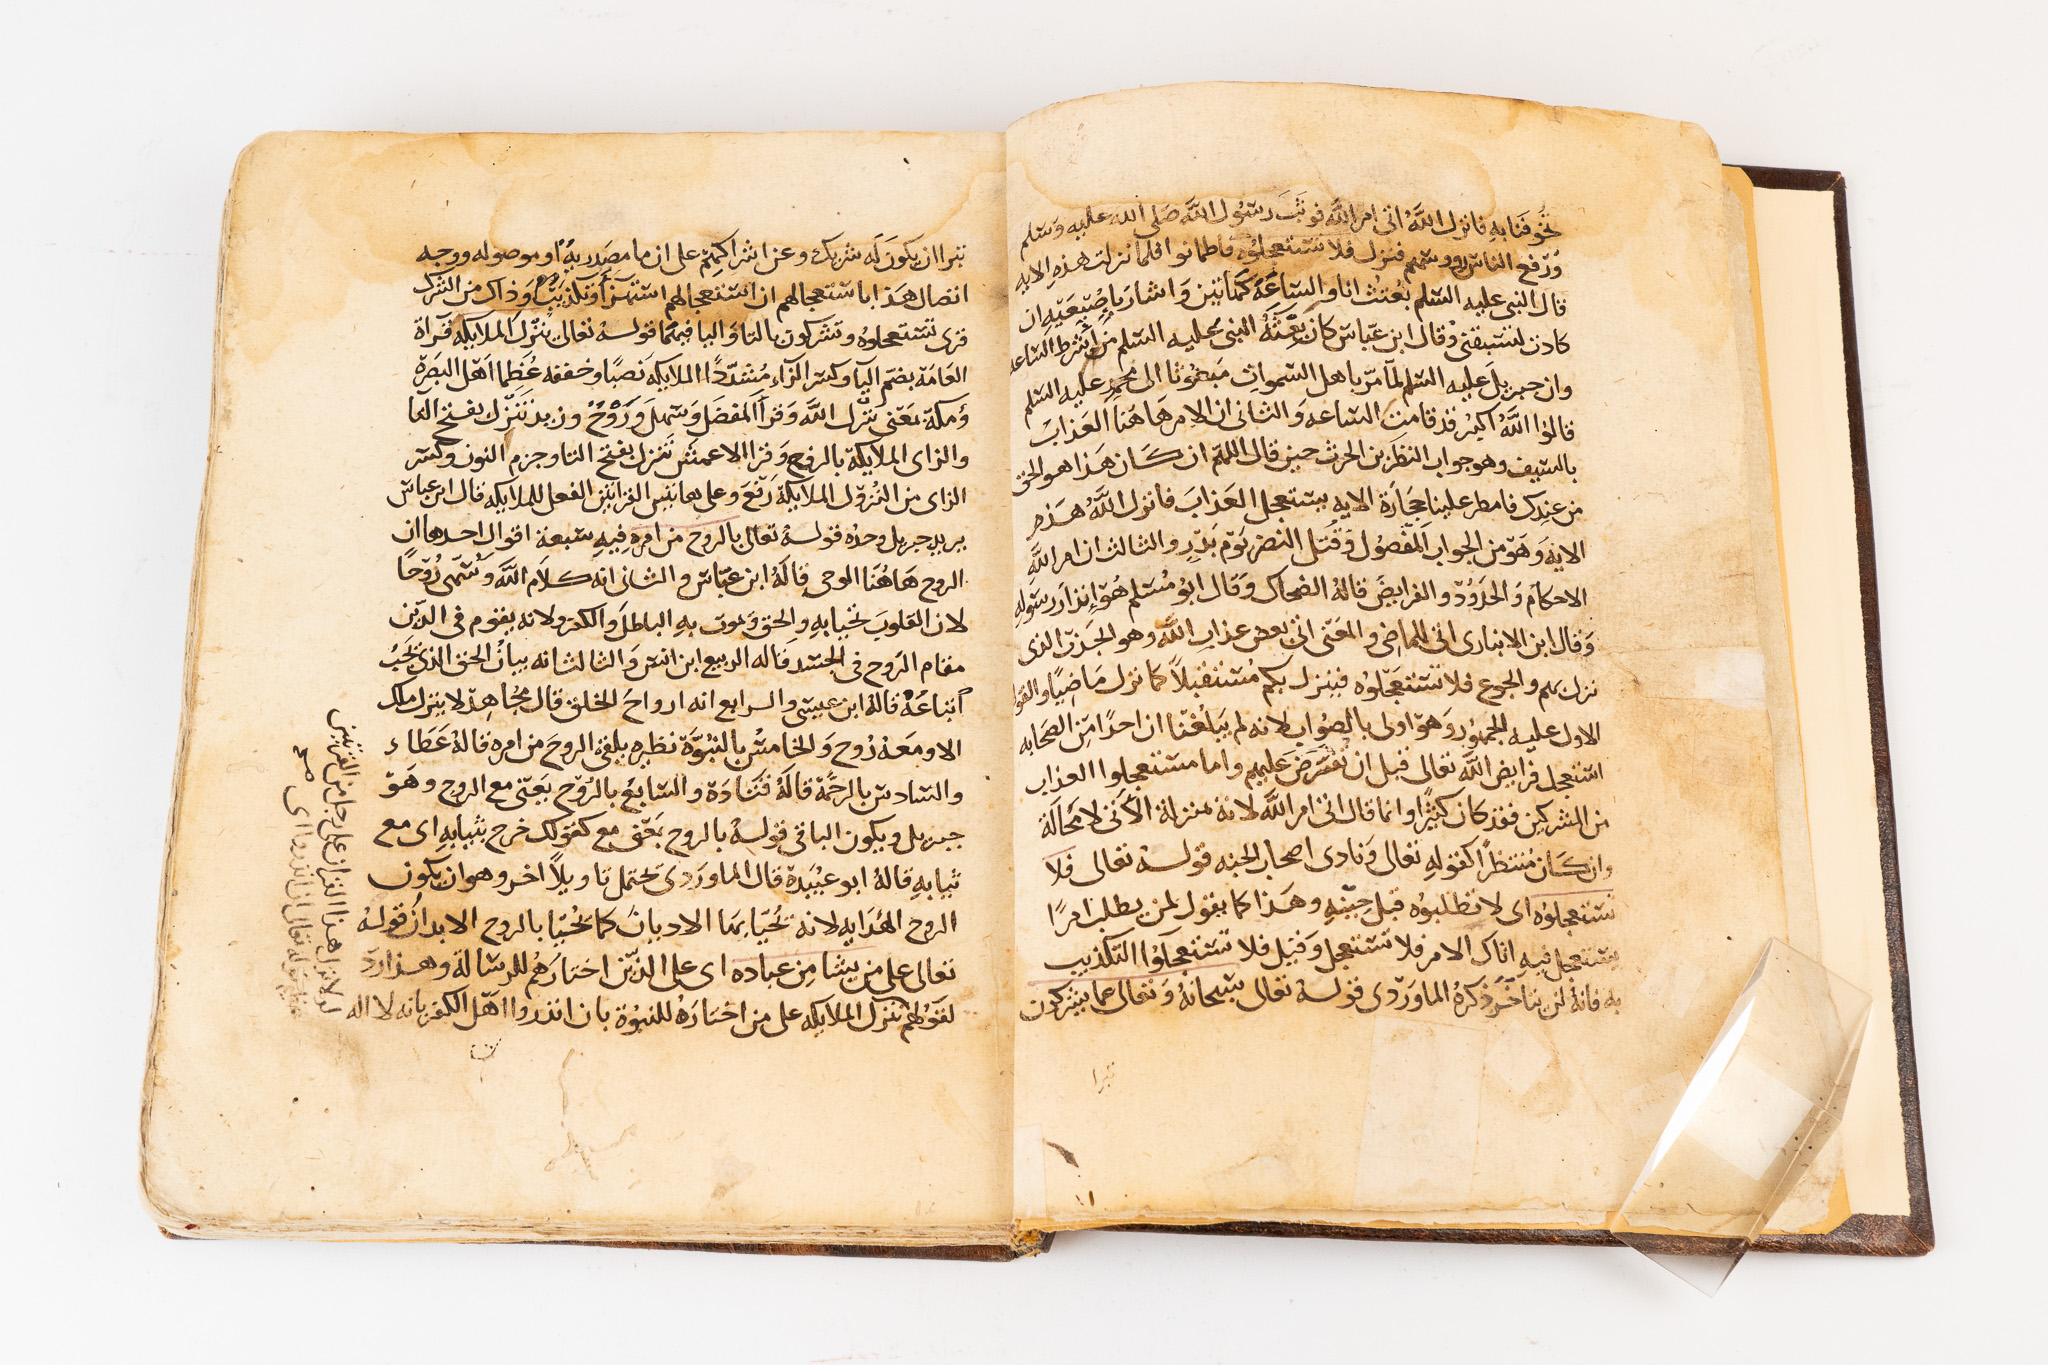 تخوفنا به فانزل الله اتى امر الله فوثب رسول الله صلى الله عليه وسلم
ورفع الناس روسهم فنزل فلا تستعجلوه فاطمانوا فلما نزلت هذه الايه
قال النبى عليه السلم بعثت انا والساعة كهاتين واشار باصبعيه ان
كادت لتسبقنى وقال ابن عباس كان بعثة النبى عليه السلم من اشرط الساعه
وان جبريل عليه السلم لما مر باهل السموات مبعوثا الى محمد عليه السلم
قالوا الله اكبر قد قامت الساعه والثانى ان الامر هاهنا العذاب
بالسيف وهو جواب النظر بن الحرث حين قال اللهم ان كان هذا هو الحق
من عندك فامطر علينا حجارة الايه يستعجل العذاب فانزل الله هذه
الايه وهو من الجواب المفصول وقتل النضر يوم بدر والثالث ان امر الله
الاحكام والحدود والفرايض قاله الضحاك وقال ابو مسلم هو انذار رسوله
وقال ابن الانبارى اتى للماضى والمعنى اتى بعض عذاب الله وهو الجذب الذى
نزل بهم والجوع فلا تستعجلوه فينزل بكم مستقبلا كما نزل ماضيا والقول
الاول عليه الجمهور وهو اولى بالصواب لانه لم يبلغنا ان احدا من الصحابه
استعجل فرايض الله تعالى قبل ان تفترض عليهم واما مستعجلوا العذاب
من المشركين فقد كان كثيرا وانما قال اتى امر الله لانه بمنزلة الاتى لا محالة
وان كان منتظرا كقوله تعالى ونادى اصحاب الجنه قوله تعالى فلا
تستعجلوه اى لا تطلبوه قبل حينه وهذا كما يقول لمن يطلب امرا
يستعجل فيه اتاك الامر فلا تستعجل وقيل فلا تستعجلوا التكذيب
به فانه لن يتاخر ذكره الماوردى قوله تعالى سبحانه وتعالى عما يشركون
تبرا
١١
تبرا ان يكون له شريك وعن اشراكهم على ان ما مصدرية او موصوله ووجه
اتصال هذا باستعجالهم ان استعجالهم استهزا وتكذيب وذاك من الشرك
قرى تستعجلوه وتشركون بالتا واليا فيهما قوله تعالى ينزل الملايكه قرآة
العامة بضم اليا وكسر الزاء مشددا الملايكه نصبا وخففه عظما اهل البصرة
ومكة بمعنى ينزل الله وقرا المفضل وسهل وروح وزيد تنزل بفتح التا
والزاى الملايكة بالروح وقرا الاعمش تنزل بفتح التا وجزم النون وكسر
الزاى من النزول الملايكة رفع وعلى هاتين القراتين الفعل للملايكه قال ابن عباس
يريد جبريل وحده قوله تعالى بالروح من امره فيه سبعة اقوال احدها ان
الروح هاهنا الوحى قاله ابن عباس والثانى انه كلام الله وسمى روحا
لان القلوب تحيا به والحق ويموت به الباطل والكفر ولانه يقوم فى الدين
مقام الروح فى الجسد قاله الربيع ابن انس والثالث انه بيان الحق الذى يجب
اتباعه قاله ابن عيسى والرابع انه ارواح الخلق قال مجاهد لا ينزل ملك
الا ومعه روح والخامس بالنبوة نظيره يلقى الروح من امره قاله عطاء
والسادس بالرحمة قاله قتادة والسابع بالروح بمعنى مع الروح وهو
جبريل ويكون الباقى قوله بالروح بمعنى مع كقولك خرج بثيابه اى مع
ثيابه قاله ابو عبيدة قال الماوردى يحتمل تاويلا اخر وهو ان يكون
الروح الهدايه لانه تحيا بها الاديان كما تحيا بالروح الابدان قوله
تعالى على من يشا من عباده اى على الذين اختارهم للرسالة وهذا رد
لقولهم ننزل الملايكه على من اختاره للنبوة بان انذروا اهل الكفر بانه لا اله
لولا نزل هذا القران على رجل من القريتين
قوله تعالى ان انذروا اى